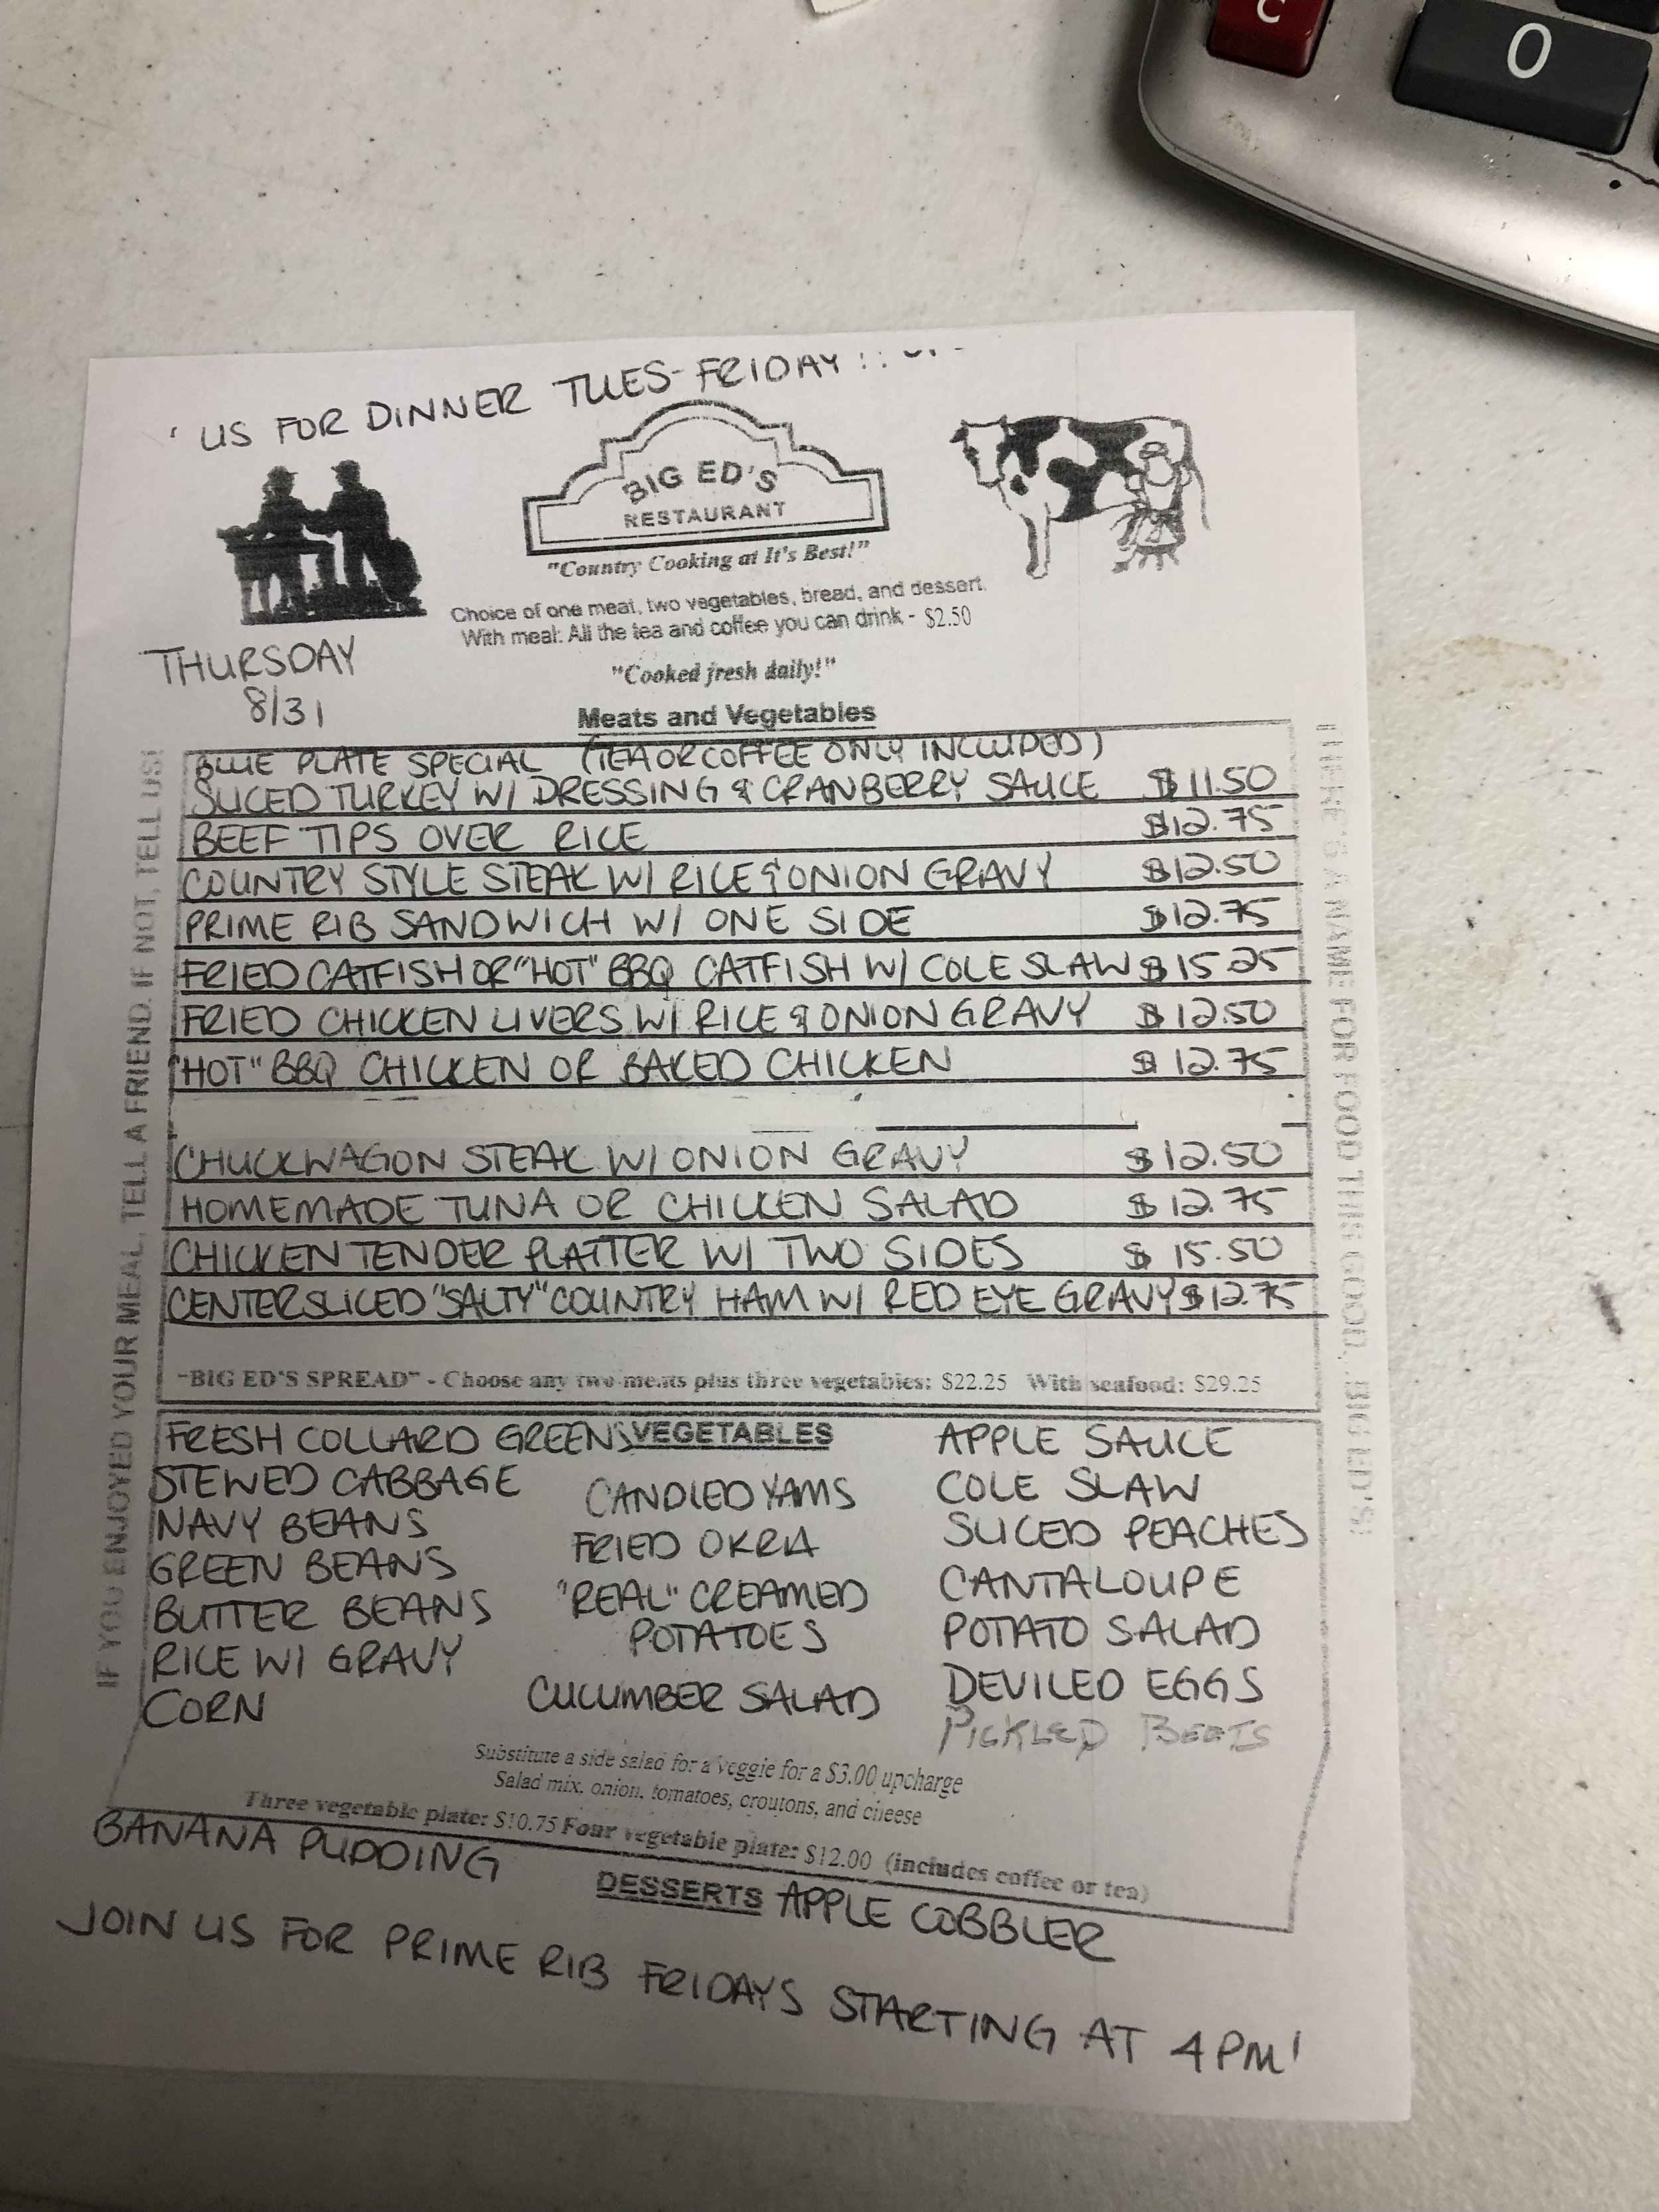 C
0
US FOR DINNER TUES-FRIDAY
BIG ED'S
RESTAURANT
"Country Cooking at It's Best!"
Choice of one meat, two vegetables, bread, and dessert.
With meal: All the tea and coffee you can drink - $2.50
"Cooked fresh daily!"
THURSDAY
8/31
Meats and Vegetables
IF YOU ENJOYED YOUR MEAL, TELL A FRIEND. IF NOT, TELL US!
BLUE PLATE SPECIAL (TEA OR COFFEE ONLY INCLUDED)
SLICED TURKEY W/ DRESSING & CRANBERRY SAUCE $11.50
BEEF TIPS OVER RICE $12.75
COUNTRY STYLE STEAK W/ RICE & ONION GRAVY $12.50
PRIME RIB SANDWICH W/ ONE SIDE $12.75
FRIED CATFISH OR "HOT" BBQ CATFISH W/ COLE SLAW $15.25
FRIED CHICKEN LIVERS W/ RICE & ONION GRAVY $12.50
"HOT" BBQ CHICKEN OR BAKED CHICKEN $12.75
CHUCKWAGON STEAK W/ ONION GRAVY $12.50
HOMEMADE TUNA OR CHICKEN SALAD $12.75
CHICKEN TENDER PLATTER W/ TWO SIDES $15.50
CENTER SLICED "SALTY" COUNTRY HAM W/ RED EYE GRAVY $12.75
"BIG ED'S SPREAD" - Choose any two meats plus three vegetables: $22.25 With seafood: $29.25
THERE'S A NAME FOR FOOD THIS GOOD...BIG ED'S!
VEGETABLES
FRESH COLLARD GREENS
STEWED CABBAGE
NAVY BEANS
GREEN BEANS
BUTTER BEANS
RICE W/ GRAVY
CORN
CANDIED YAMS
FRIED OKRA
"REAL" CREAMED
POTATOES
CUCUMBER SALAD
APPLE SAUCE
COLE SLAW
SLICED PEACHES
CANTALOUPE
POTATO SALAD
DEVILED EGGS
PICKLED BEETS
Substitute a side salad for a veggie for a $3.00 upcharge
Salad mix, onion, tomatoes, croutons, and cheese
Three vegetable plate: $10.75 Four vegetable plate: $12.00 (includes coffee or tea)
BANANA PUDDING
DESSERTS APPLE COBBLER
JOIN US FOR PRIME RIB FRIDAYS STARTING AT 4PM!